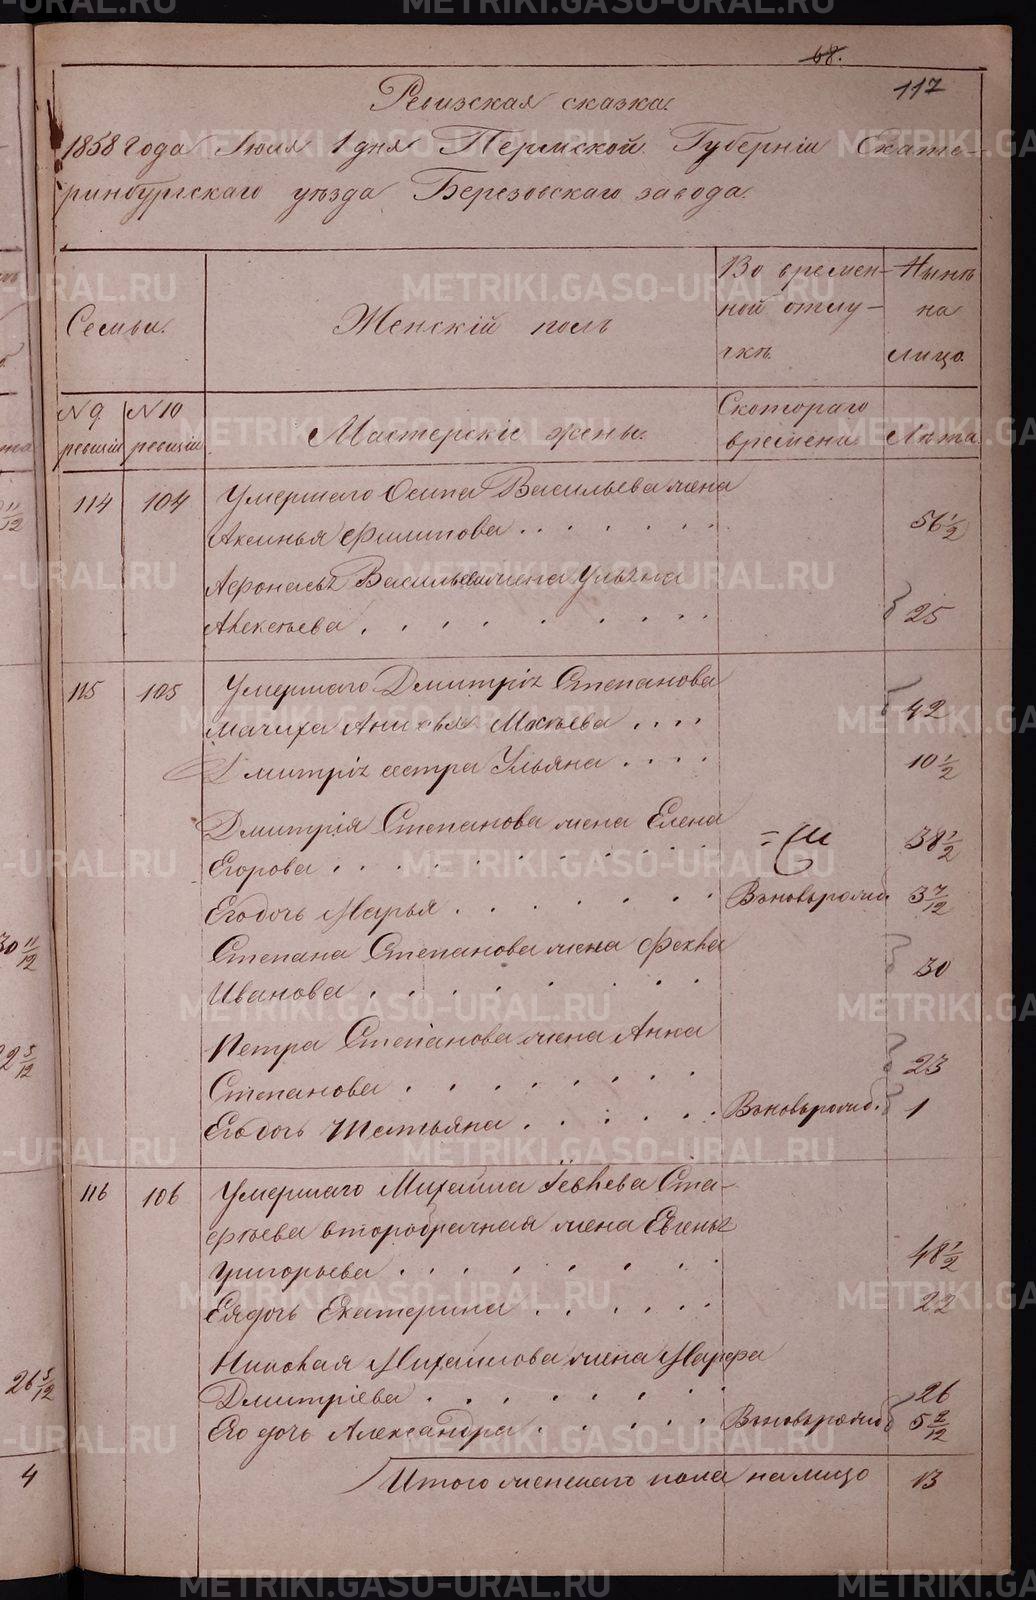 68.
117
Ревизская сказка.
1858 года Июля 1 дня Пермской Губернiи Екате-
ринбургскаго уѣзда Березовскаго завода.
Семьи. Женскiй полъ Во времен- Нынѣ
ной отлу- на
чкѣ. лицо.
N 9 N 10 Скотораго
ревизiи ревизiи Мастерскiе жены. времени Лѣта
114 104 Умершаго Осипа Васильева жена
Аксинья Филипова . . . . . . 56 1/2
Афонасья Васильева жена Ульяна
Алексѣева . . . . . . . . 25
115 105 Умершаго Дмитрiя Степанова
мачиха Анисья Матвѣева . . . . 42
Дмитрiя сестра Ульяна . . . . 10 1/2
Дмитрiя Степанова жена Елена
Егорова . . . . . . . . . 38 1/2
Его дочь Марья . . . . . . Вновьрожд. 3 7/12
Степана Степанова жена Фекла
Иванова . . . . . . . 30
Петра Степанова жена Анна
Степанова . . . . . . . 23
Его дочь Татьяна . . . . . Вновьрожд. 1
116 106 Умершаго Михайла
второбрачная жена Евгенья
Григорьева . . . . . . . 48 1/2
Ея дочь Екатерина . . . . . 22
Николая Михаилова жена Марфа
Дмитрiева . . . . . . . 26
Его дочь Александра . . . . . Вновьрожд. 5 2/12
Итого женскаго пола на лицо 13
30 11/12
26 5/12
4
METRIKI.GASO-URAL.RU